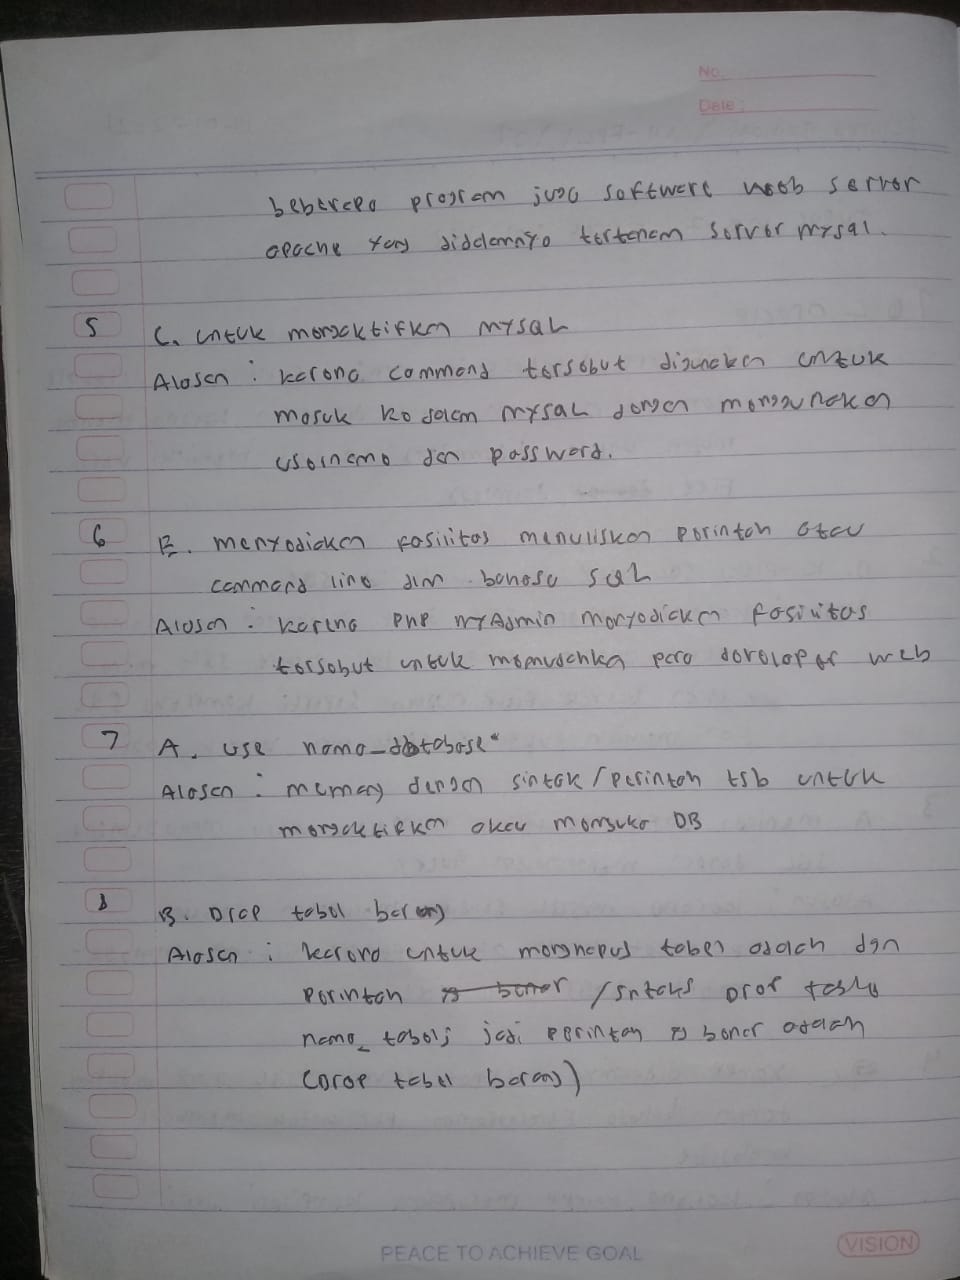 No.
Date :
beberapa program juga software web server
apache yang didalamnya tertanam server mysql.
5 C. untuk mengaktifkan MYSQL
Alasan : karena command tersebut digunakan untuk
masuk ke dalam MYSQL dengan menggunakan
username dan password.
6 E. menyediakan fasilitas menuliskan perintah atau
command line dlm bahasa SQL
Alasan : karena PHP MyAdmin menyediakan fasilitas
tersebut untuk memudahkan para developer web
7 A. use nama_database"
Alasan : memang dengan sintak / perintah tsb untuk
mengaktifkan atau membuka DB
8 B. Drop tabel barang
Alasan : karena untuk menghapus tabel adalah dgn
perintah / sintaks Drop table
nama_tabel; jadi perintah yg benar adalah
(Drop tabel barang)
PEACE TO ACHIEVE GOAL
VISION